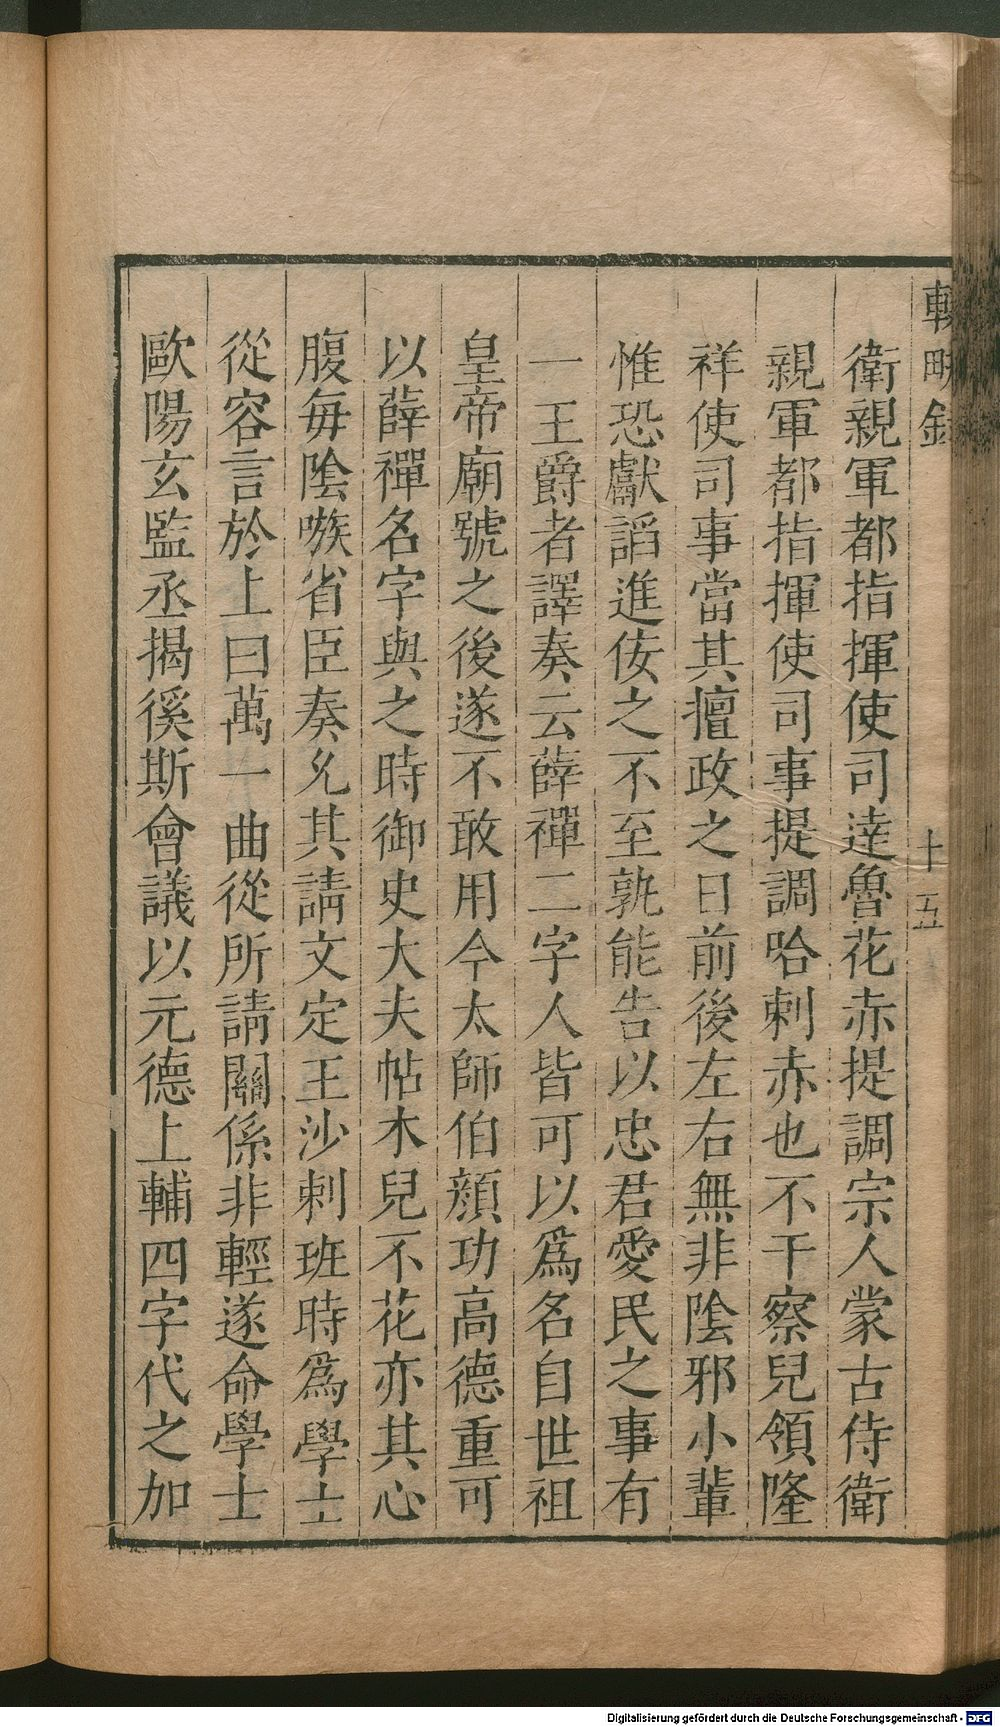 輟畊錄
十五
衛親軍都指揮使司達魯花赤提調宗人蒙古侍衛
親軍都指揮使司事提調哈剌赤也不干察兒領隆
祥使司事當其擅政之日前後左右無非陰邪小輩
惟恐獻謟進佞之不至孰能告以忠君愛民之事有
一王爵者譯奏云薛禪二字人皆可以爲名自世祖
皇帝廟號之後遂不敢用今太師伯顔功高德重可
以薛禪名字與之時御史大夫帖木兒不花亦其心
腹每陰嗾省臣奏允其請文定王沙剌班時爲學士
從容言於上曰萬一曲從所請關係非輕遂命學士
歐陽玄監丞揭徯斯會議以元德上輔四字代之加
Digitalisierung gefördert durch die Deutsche Forschungsgemeinschaft - DFG